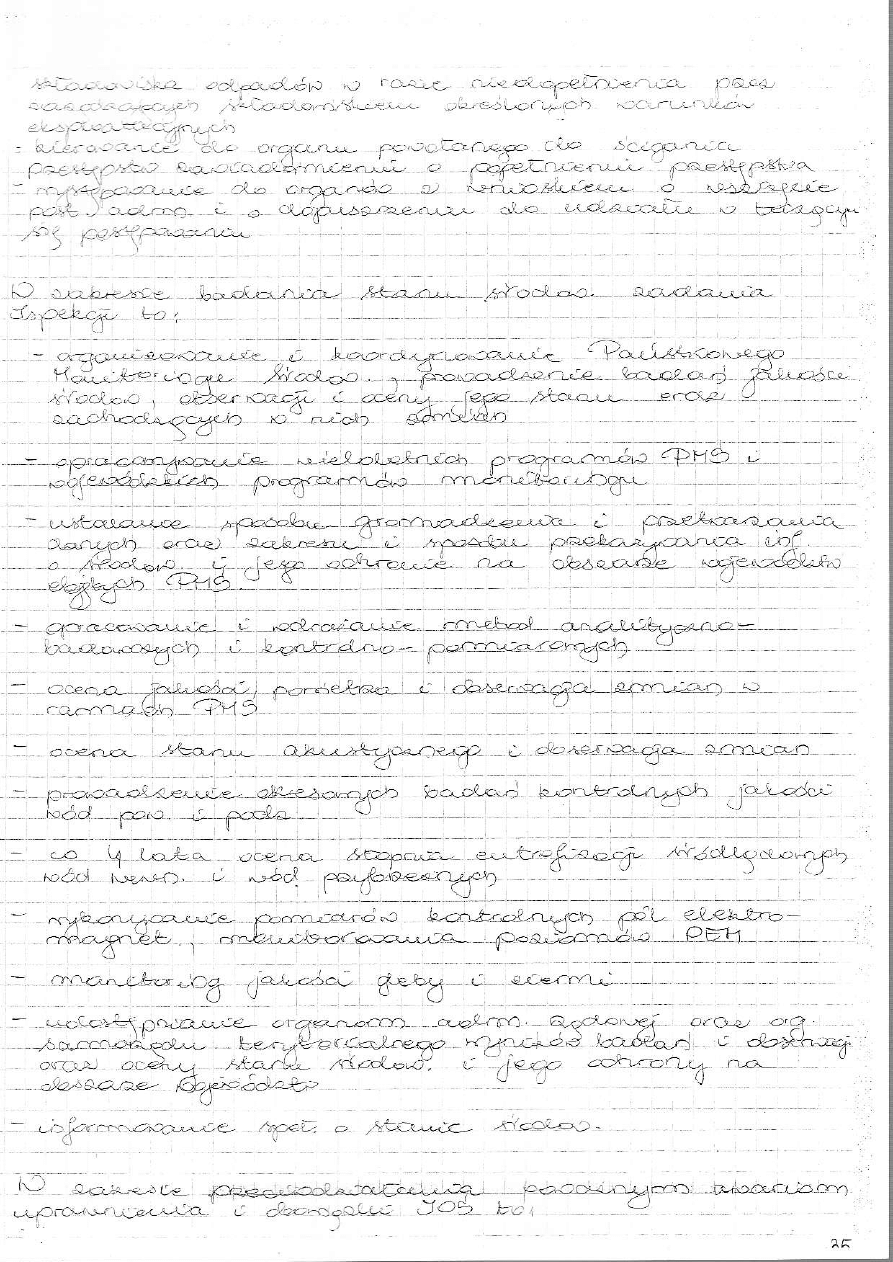 składowiska odpadów w razie niedopełnienia przez
zarządzających składowiskiem określonych warunków
eksploatacyjnych
- kierowanie do organu powołanego do ścigania
przestępstw zawiadomienii o popełnieniu przestępstwa
- występowanie do organów z wnioskiem o wszczęcie
post. adm. i o dopuszczeniu do udziału w toczącym
się postępowaniu
W zakresie badania stanu środow. zadania
Ispekcji to:
- organizowanie i koordynowanie Państwowego
Monitoringu środow., prowadzenie badań jakości
środow., obserwacji i oceny jego stanu oraz
zachodzących w nich zmian
- opracowywanie wieloletnich programów PMŚ i
wojewódzkich programów monitoringu
- ustalanie sposobu gromadzenia i przetwarzania
danych oraz zakresu i sposobu przekazywania inf
o środow. i jego ochronie na obszarze województw
objętych PMŚ
- opracowanie i wdrażanie metod analityczno-
badawczych i kontrolno-pomiarowych
- ocena jakości powietrza i obserwacja zmian w
ramach PMŚ
- ocena stanu akustycznego i obserwacja zmian
- prowadzenie okresowych badań kontrolnych jakości
wód pow. i podz
- co 4 lata ocena stopnia eutrofizacji śródlądowych
wód wewn. i wód przybrzeżnych
- wykonywanie pomiarów kontrolnych pól elektro-
magnet., monitorowania poziomów PEM
- monitoring jakości gleby i ziemi
- udostępnianie organom adm. rządowej oraz org.
samorządu terytorialnego wyników badań i obserwacji
oraz oceny stanu środow. i jego ochrony na
obszarze województw
- informowanie społ. o stanie środow.
W zakresie przeciwdziałania poważnym awariom
uprawnienia i obowiązki IOŚ to:
25